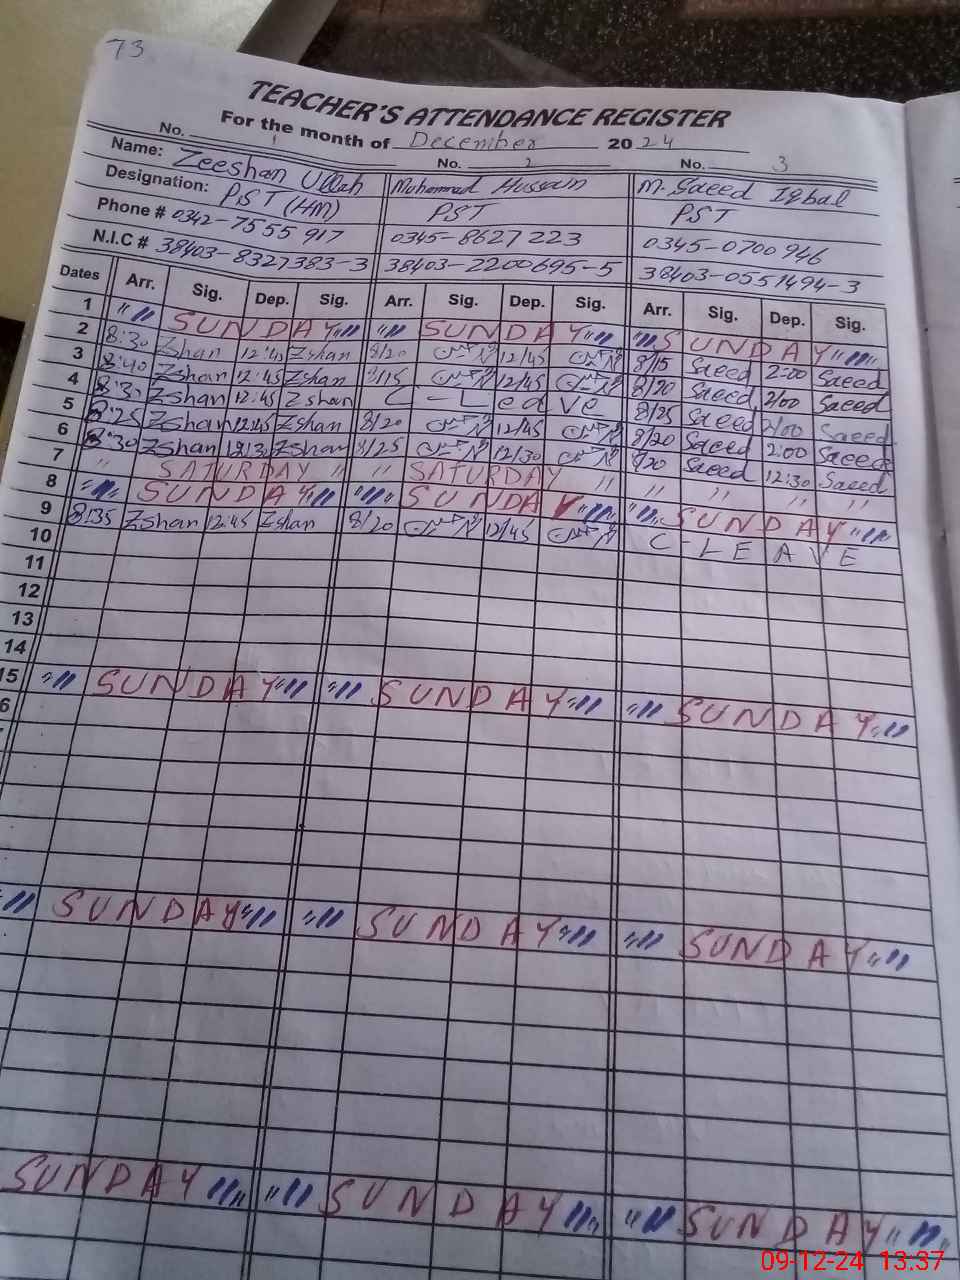 73
TEACHER'S ATTENDANCE REGISTER
For the month of December 2024
No. 1 No. 2 No. 3
Name: Zeeshan Ullah Muhammad Hussain M. Saeed Iqbal
Designation: PST (HM) PST PST
Phone # 0342-7555917 0345-8627223 0345-0700946
N.I.C # 38403-8327383-3 38403-2200695-5 38403-0551494-3
Dates Arr. Sig. Dep. Sig. Arr. Sig. Dep. Sig. Arr. Sig. Dep. Sig.
1 " " SUNDAY " " " " SUNDAY " " " " SUNDAY " "
2 8:30 Zshan 12:45 Zshan 8/20 12/45 8/15 Saeed 2:00 Saeed
3 8:40 Zshan 12:45 Zshan 8/15 12/45 8/20 Saeed 2/00 Saeed
4 8:30 Zshan 12:45 Zshan C-Leave 8/25 Saeed 2/00 Saeed
5 8:25 Zshan 12:45 Zshan 8/20 12/45 8/20 Saeed 2:00 Saeed
6 8:30 Zshan 12:30 Zshan 8/25 12/30 8/20 Saeed 12:30 Saeed
7 " SATURDAY " " SATURDAY " " " " "
8 " " SUNDAY " " " " SUNDAY " " " " SUNDAY " "
9 8:35 Zshan 12:45 Zshan 8/20 12/45 C-LEAVE
10
11
12
13
14
15 " " SUNDAY " " " " SUNDAY " " " " SUNDAY " "
6
" " SUNDAY " " " " SUNDAY " " " " SUNDAY " "
SUNDAY " " " " SUNDAY " " " " SUNDAY " "
09-12-24 13.37